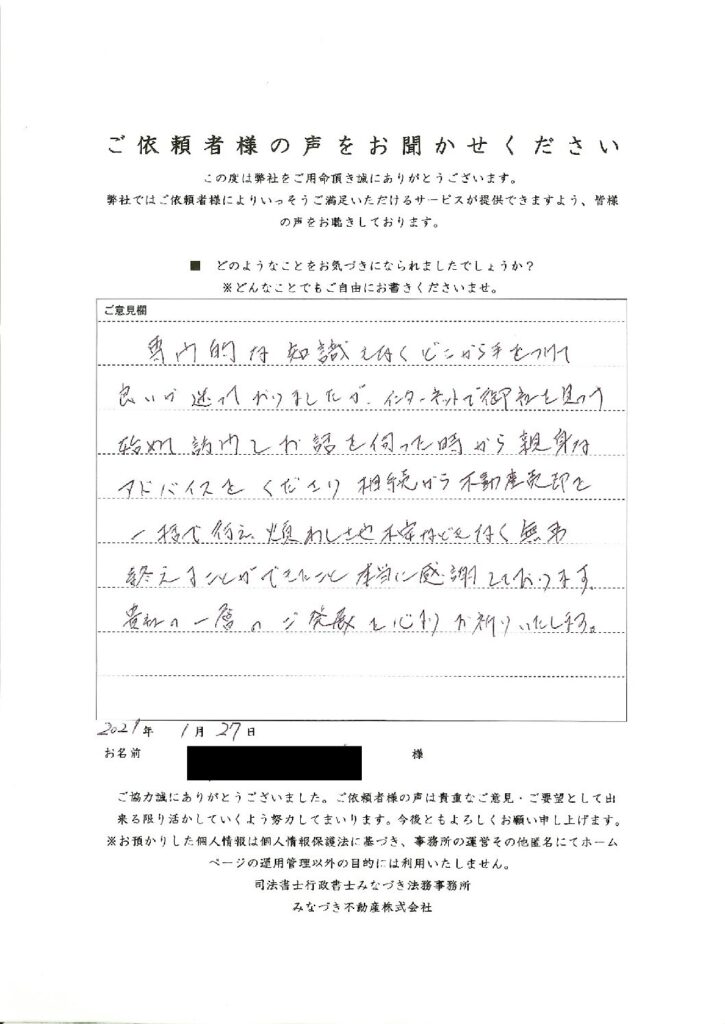 ご依頼者様の声をお聞かせください
この度は弊社をご用命頂き誠にありがとうございます。
弊社ではご依頼者様によりいっそうご満足いただけるサービスが提供できますよう、皆様
の声をお聴きしております。
■ どのようなことをお気づきになられましたでしょうか？
※どんなことでもご自由にお書きくださいませ。
ご意見欄
専門的な知識もなくどこから手をつけて
良いか迷っておりましたが、インターネットで御社を見つけ
始めて訪問しお話を伺った時から親身な
アドバイスをくださり相続から不動産売却を
一括で行え、煩わしさや不安などもなく無事
終えることができたこと本当に感謝しております。
貴社の一層のご発展を心よりお祈りいたします。
2021年 1月 27日
お名前 様
ご協力誠にありがとうございました。ご依頼者様の声は貴重なご意見・ご要望として出
来る限り活かしていくよう努力してまいります。今後ともよろしくお願い申し上げます。
※お預かりした個人情報は個人情報保護法に基づき、事務所の運営その他匿名にてホーム
ページの運用管理以外の目的には利用いたしません。
司法書士行政書士みなづき法務事務所
みなづき不動産株式会社